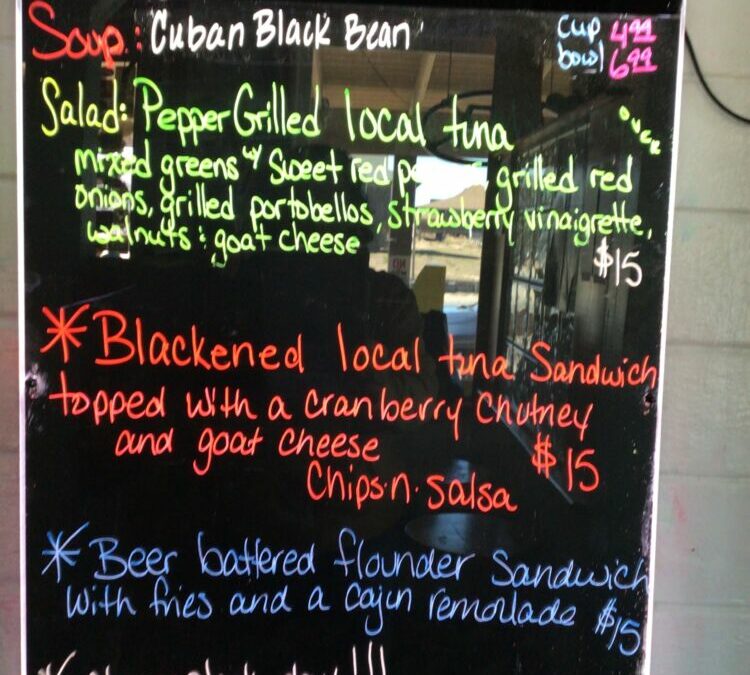 Soup: Cuban Black Bean
cup 4.99
bowl 6.99
Salad: Pepper Grilled local tuna
over
mixed greens w/ Sweet red grilled red
onions, grilled portobellos, strawberry vinaigrette,
walnuts & goat cheese
$15
*Blackened local tuna Sandwich
topped with a cranberry Chutney
and goat cheese $15
Chips.n.salsa
*Beer battered flounder Sandwich
with fries and a cajun remoulade $15